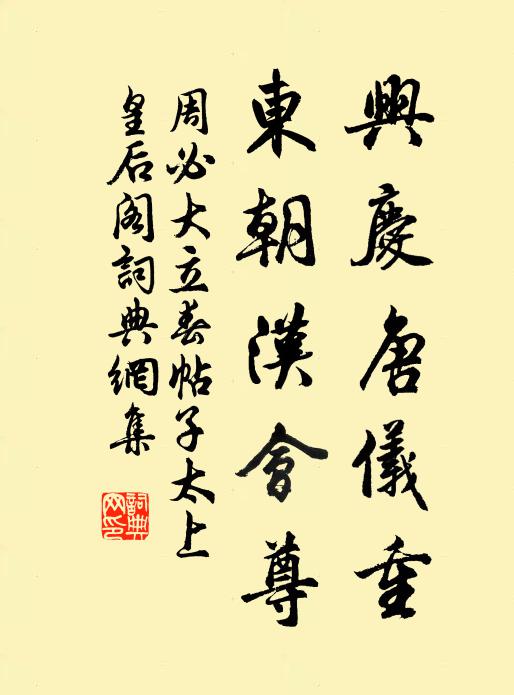 興慶唐儀重
東朝漢會尊
周必大立春帖子太上
皇后阁詞典網集
詞典網印